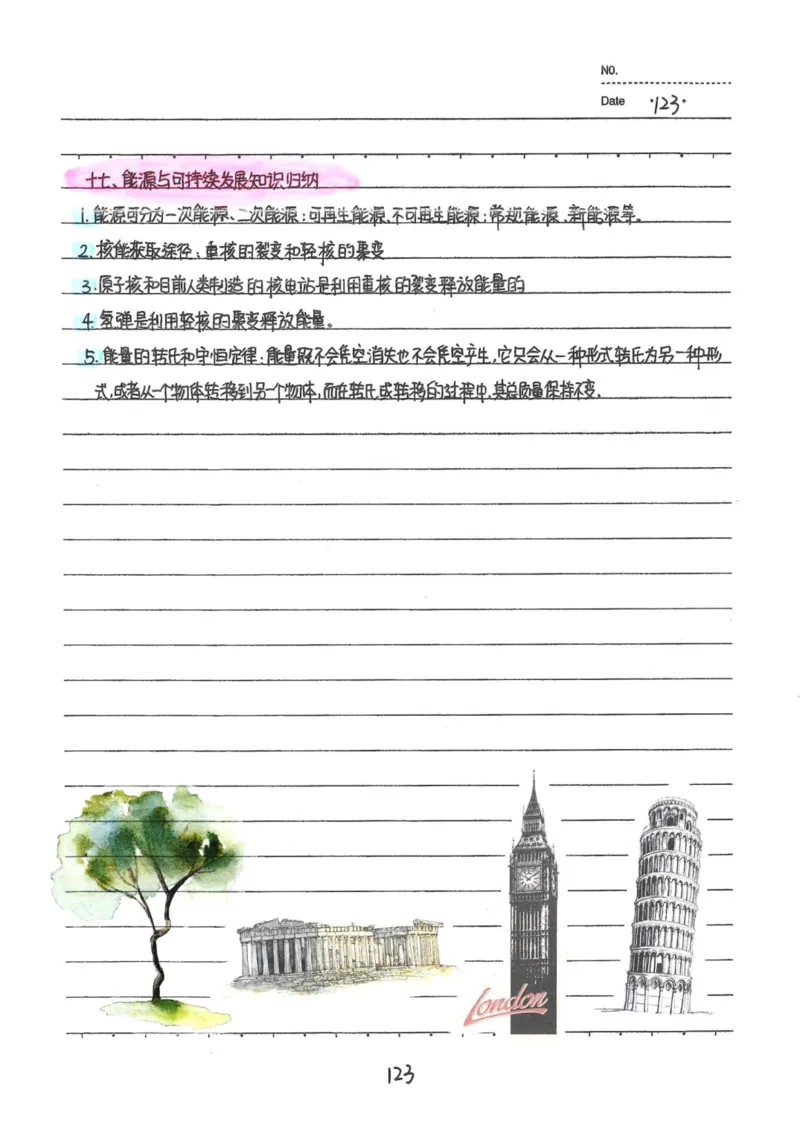 NO.
Date ·123·
十七、能源与可持续发展知识归纳
1. 能源可分为一次能源、二次能源；可再生能源、不可再生能源；常规能源、新能源等。
2. 核能获取途径：重核的裂变和轻核的聚变
3. 原子核和目前人类制造的核电站是利用重核的裂变释放能量的
4. 氢弹是利用轻核的聚变释放能量。
5. 能量的转化和守恒定律：能量既不会凭空消失也不会凭空产生，它只会从一种形式转化为另一种形
式，或者从一个物体转移到另一个物体，而在转化或转移的过程中，其总质量保持不变.
London
123